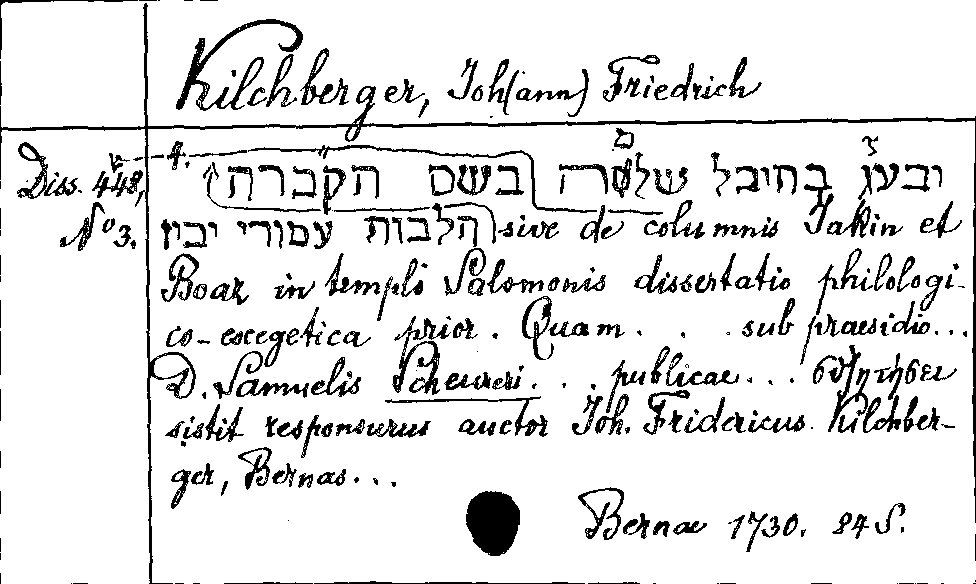 Kilchberger, Joh(ann) Friedrich
Diss. 448, 4. ובעז בחיכל שלמה בשם הקברה
No 3. הלכות עמודי יכין sive de columnis Jakin et
Boaz in templo Salomonis dissertatio philologi-
co-exegetica prior. Quam . . . sub praesidio...
D. Samuelis Scheureri . . . publicae . . . συζητήσει
sistit responsurus auctor Joh. Fridericus Kilchber-
ger, Bernas...
Bernae 1730. 84 S.